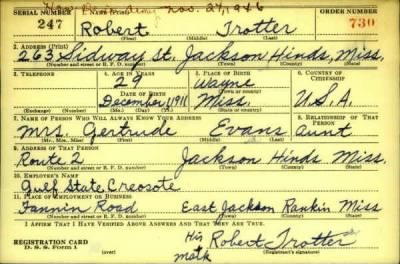 SERIAL NUMBER 1. NAME (Print) Nov. 27, 1946 ORDER NUMBER
247 Robert Trotter 730
(First) (Middle) (Last)
2. ADDRESS (Print)
263 Sidway St. Jackson Hinds, Miss.
(Number and street or R. F. D. number) (Town) (County) (State)
3. TELEPHONE 4. AGE IN YEARS 5. PLACE OF BIRTH 6. COUNTRY OF CITIZENSHIP
28 Wayne
DATE OF BIRTH (Town or county)
December 1911 Miss. U.S.A.
(Exchange) (Number) (Mo.) (Day) (Yr.) (State or country)
7. NAME OF PERSON WHO WILL ALWAYS KNOW YOUR ADDRESS 8. RELATIONSHIP OF THAT PERSON
Mrs. Gertrude Evans aunt
(Mr., Mrs., Miss) (First) (Middle) (Last)
9. ADDRESS OF THAT PERSON
Route 2 Jackson Hinds Miss.
(Number and street or R. F. D. number) (Town) (County) (State)
10. EMPLOYER'S NAME
Gulf State Creosote
11. PLACE OF EMPLOYMENT OR BUSINESS
Fannin Road East Jackson Rankin Miss
(Number and street or R. F. D. number) (Town) (County) (State)
I AFFIRM THAT I HAVE VERIFIED ABOVE ANSWERS AND THAT THEY ARE TRUE.
REGISTRATION CARD His Robert Trotter
D. S. S. Form 1 (over) mark (Registrant's signature)